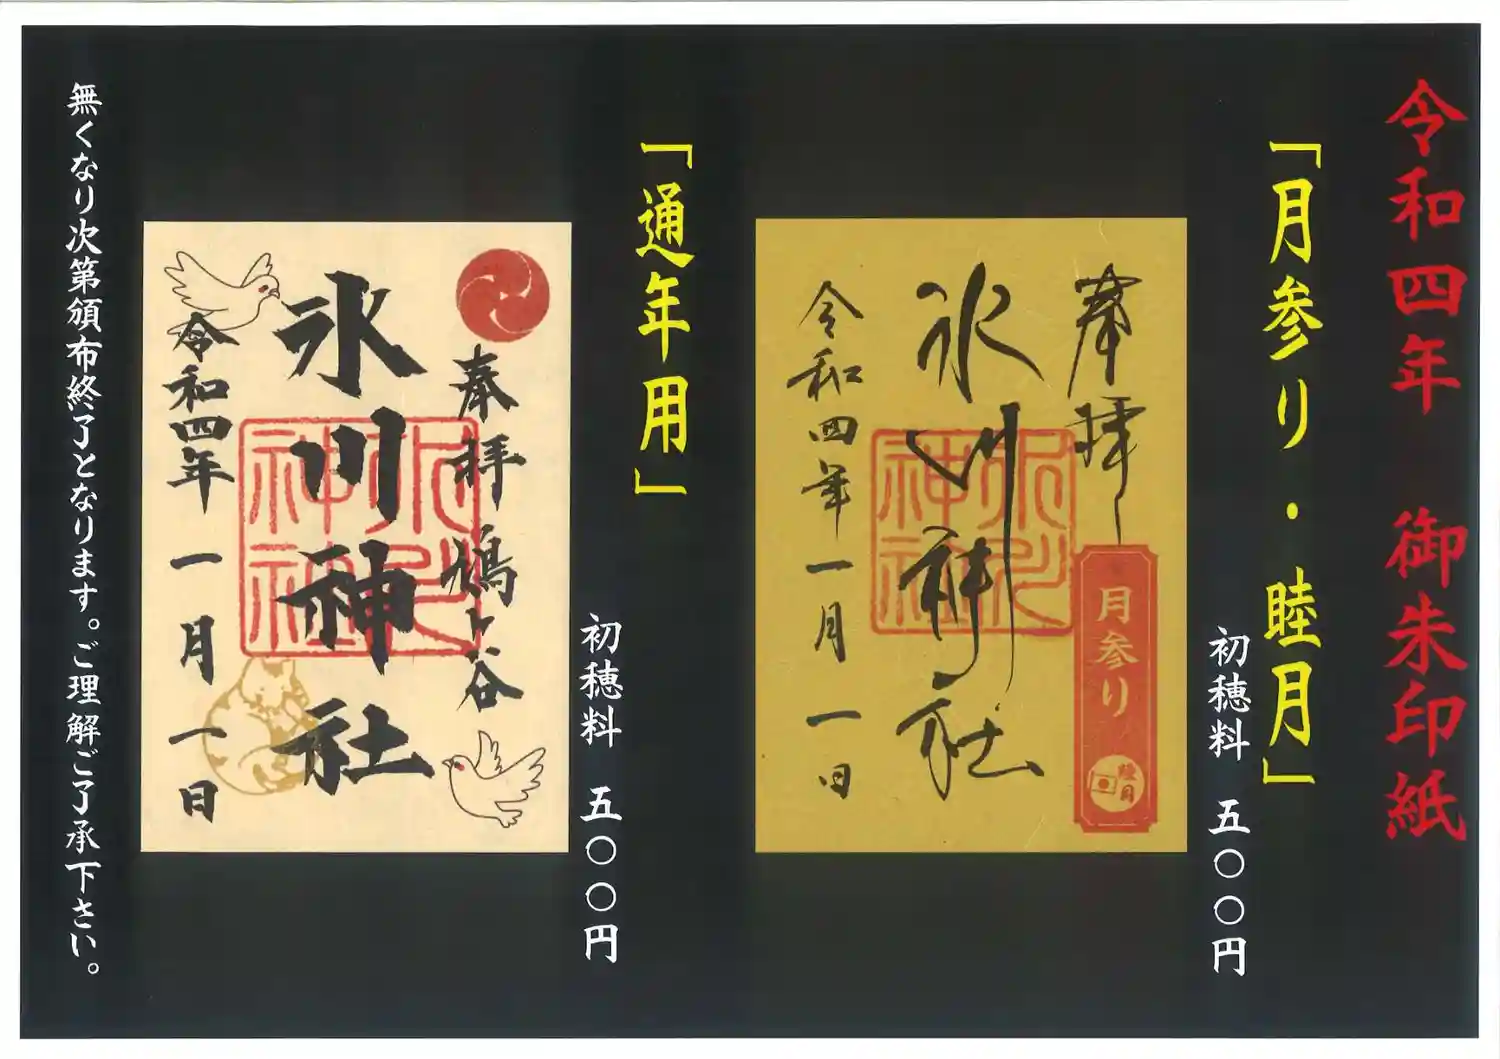 令和四年 御朱印紙
「月参り・睦月」
初穂料 五〇〇円
奉拝
月参り
睦月
氷川神社
氷川神社
令和四年一月一日
「通年用」
初穂料 五〇〇円
奉拝 鳩ヶ谷
氷川神社
氷川神社
令和四年一月一日
無くなり次第頒布終了となります。ご理解ご了承下さい。